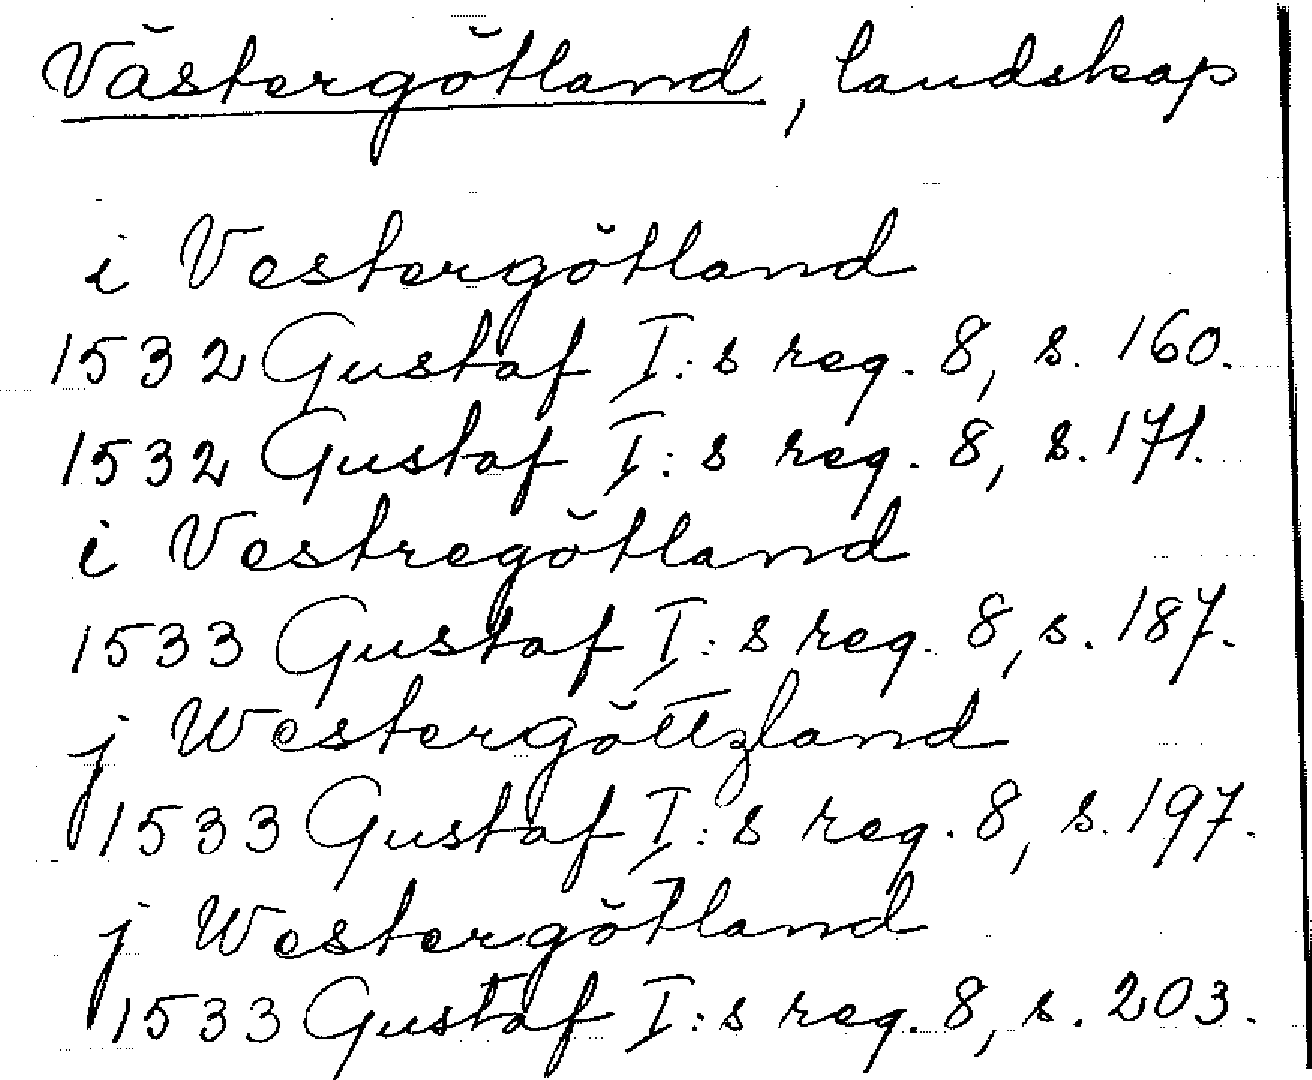 Västergötland, landskap
i Vestergötland
1532 Gustaf I:s reg. 8, s. 160.
1532 Gustaf I:s reg. 8, s. 171.
i Vestregötland
1533 Gustaf I:s reg. 8, s. 187.
j Westergöttzland
1533 Gustaf I:s reg. 8, s. 197.
j Westergötland
1533 Gustaf I:s reg. 8, s. 203.